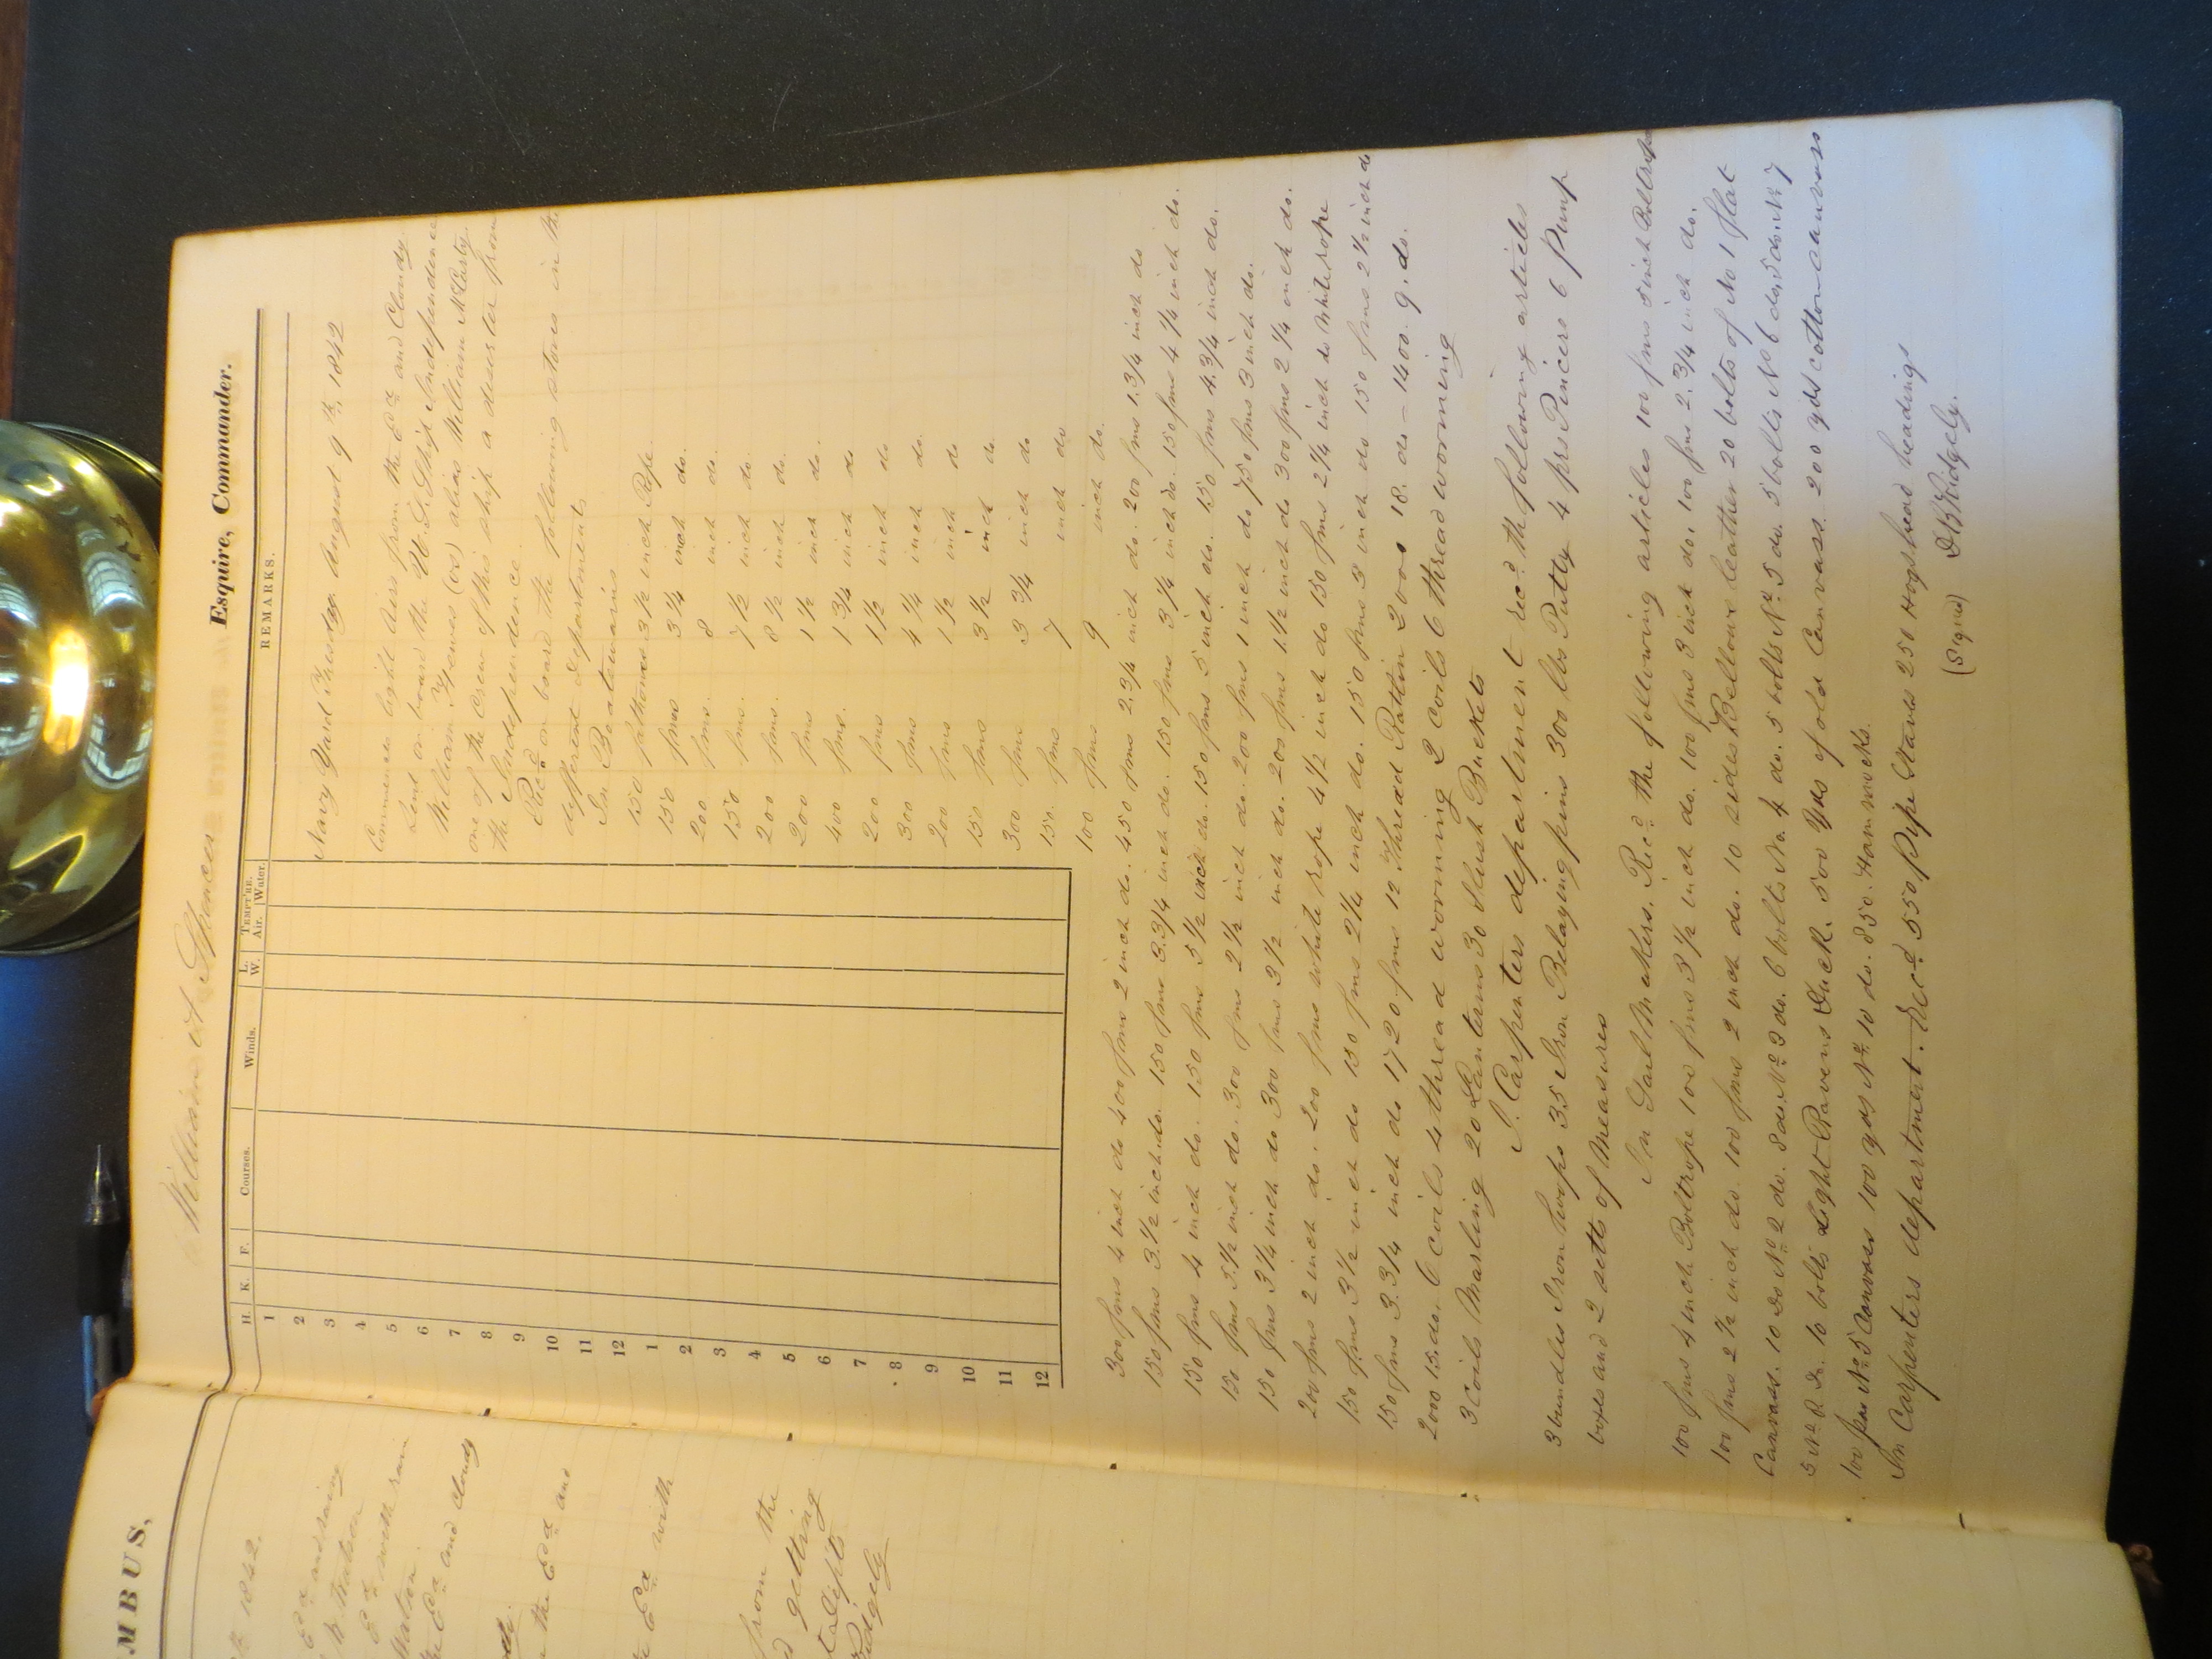 MBUS,
1842.
Ed and rainy
Ed with rain
Ed and cloudy
the Ed and
Ed with
from the
getting
Ridgely
William A Spencer Esquire, Commander.
H. K. F. Courses. Winds. L. W. TEMPT'RE. Air. Water. REMARKS.
1
2
3
4
5
6
7
8
9
10
11
12
1
2
3
4
5
6
7
8
9
10
11
12
Navy Yard Tuesday. August 9th. 1842
Commences light Airs from the Ed and Cloudy.
Sent on board the U. S. Ship Independence
William Hewes (or) alias William McCarty.
one of the Crew of this ship a deserter from
the Independence.
Recd on board the following stores in the
different departments
In Boatswains
150 fathoms 3 1/2 inch Rope.
150 fms 3 1/4 inch do.
200 fms. 8 inch do.
150 fms. 7 1/2 inch do.
200 fms. 8 1/2 inch do.
200 fms 1 1/2 inch do.
400 fms. 1 3/4 inch do
200 fms 1 1/2 inch do
300 fms 4 1/4 inch do.
200 fms 1 1/2 inch do
150 fms 3 1/2 inch do.
300 fms 3 3/4 inch do
150. fms 7 inch do
100 fms 9 inch do.
300 fms 4 inch do 400 fms 2 inch do. 450 fms 2.3/4 inch do. 200 fms 1.3/4 inch do
150 fms 3.1/2 inch do. 150 fms 3.3/4 inch do. 150 fms 3 1/4 inch do. 150 fms 4 1/4 inch do.
150 fms 4 inch do. 150 fms 5 1/2 inch do. 150 fms 5 inch do. 150 fms 4.3/4 inch do.
150 fms 5.1/2 inch do. 300 fms 2 1/2 inch do. 200 fms 1 inch do 750 fms 3 inch do.
150 fms 3 1/4 inch do 300 fms 3 1/2 inch do. 200 fms 1.1/2 inch do 300 fms 2 1/4 inch do.
200 fms 2 inch do. 200 fms white rope 4 1/2 inch do 150 fms 2 1/4 inch do White rope
150 fms 3 1/2 inch do 150 fms 2 1/4 inch do. 150 fms 3 inch do 150 fms 2 1/2 inch do
150 fms 3.3/4 inch do 1720 fms 12 thread Ratlin 2000 18. do - 1400. 9. do.
2000 15. do. 6 coils 4 thread worming 2 coils 6 thread worming
3 Coils Marling 20 Lanterns 30 Slush Buckets
I. Carpenters department recd the following articles
3 bundles Iron hoops 35 Iron Belaying pins 300 lbs Putty 4 prs Pincers 6 Pump
boxes and 2 setts of Measures
In Sail Makers. Recd the following articles 100 fms 5 inch Boltrope
100 fms 4 inch Boltrope 100 fms 3 1/2 inch do. 100 fms 3 inch do. 100 fms 2.3/4 inch do.
100 fms 2 1/2 inch do. 100 fms 2 inch do. 10 sides Bellows leather 20 bolts of No 1 flat
Canvass. 10 do No 2 do. 8 do. No 3 do. 6 bolts No. 4 do. 5 bolts No. 5 do. 5 bolts No 6 do. 5 do. No 7
5 No 8 do. 10 bolts Light Ravens Duck. 500 Yds of old Canvass. 200 yds cotton canvass
100 yds No 5 Canvass 100 yds No 10 do. 850. Hammocks.
In Carpenters department. Recd 550 Pipe Staves 250 Hogshead headings
(Signed) D B Ridgely.